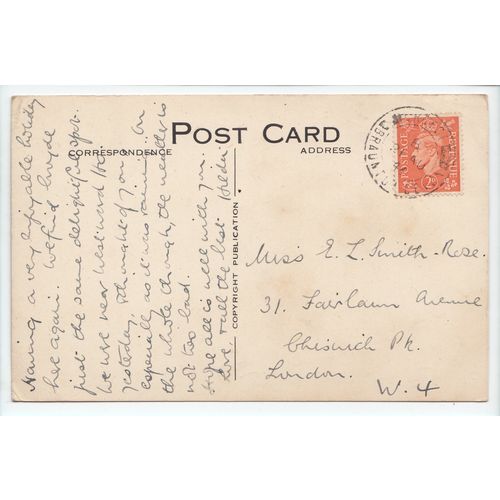 POST CARD
CORRESPONDENCE
ADDRESS
Having a very enjoyable holiday
here again. We find Croyde
just the same delightful spot.
We were near Westward Ho!
yesterday, & thought of you
especially as it was raining on
the whole though the weather is
not too bad.
Hope all is well with you.
Love, till the last Helen
COPYRIGHT PUBLICATION
BRAUNT
POSTAGE
REVENUE
2D
Miss E. L. Smith-Rose.
31. Fairlawn Avenue
Chiswick Pk.
London.
W.4